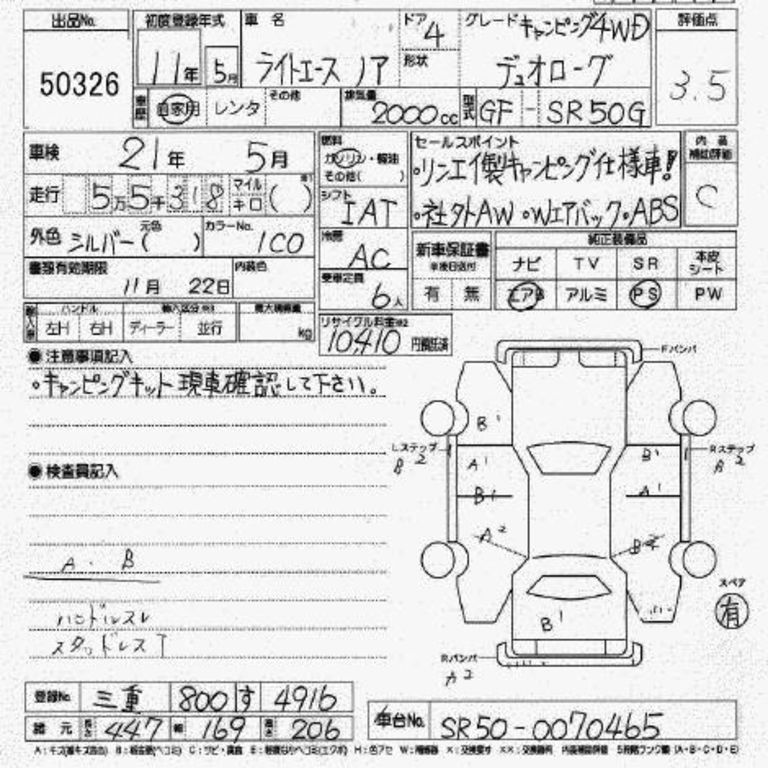 出品No.
50326
初度登録年式
11年 5月
車名
ライトエース ノア
ドア 4
形状
グレード キャンピング4WD
デュオローグ
評価点
3.5
車歴 自家用 レンタ その他
排気量 2000cc
型式 GF - SR50G
車検 21年 5月
燃料 ガソリン・軽油
その他( )
セールスポイント
・リンエイ製キャンピング仕様車!
・社外AW ・Wエアバック・ABS
内装補助評価
C
走行 5万5千318 マイル キロ ( )
シフト
IAT
外色 シルバー 元色 ( )
カラーNo. 1C0
冷房
AC
新車保証書
有 無
純正装備品
ナビ TV SR 本皮シート
エアB アルミ PS PW
書類有効期限
11月 22日
内装色
乗車定員
6人
ハンドル
左H 右H ディーラー 並行
最大積載量
kg
リサイクル料金※2
10410 円預託済
●注意事項記入
・キャンピングキット現車確認して下さい。
●検査員記入
A・B
ハンドルスレ
スタッドレスT
Fバンパ
Lステップ
B2
Rステップ
A2
B1
A1
B1
A2
B1
A1
B2
B1
スペア
有
Rバンパ
A2
登録No. 三重 800 す 4916
諸元 長さ 447 幅 169 高さ 206
車台No. SR50-0070465